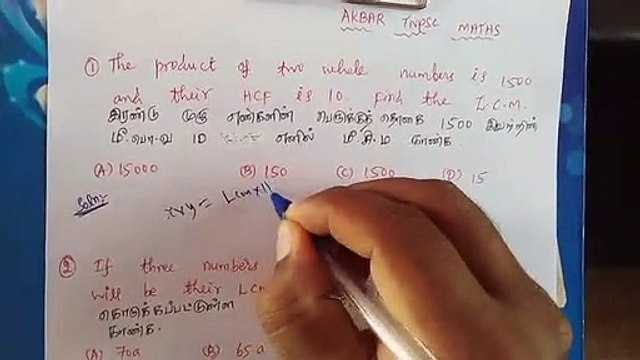 AKBAR TNPSC MATHS
① The product of two whole numbers is 1500
and their HCF is 10. Find the L.C.M.
இரண்டு முழு எண்களின் பெருக்குத் தொகை 1500 இவற்றின்
மீ.பொ.வ 10 எனில் மீ.சி.ம காண்க.
(A) 15000 (B) 150 (C) 1500 (D) 15
Soln:
x×y = Lcm×H
② If three numbers
will be their LC
கொடுக்கப்பட்டுள்ள
காண்க.
(A) 70a (B) 65a